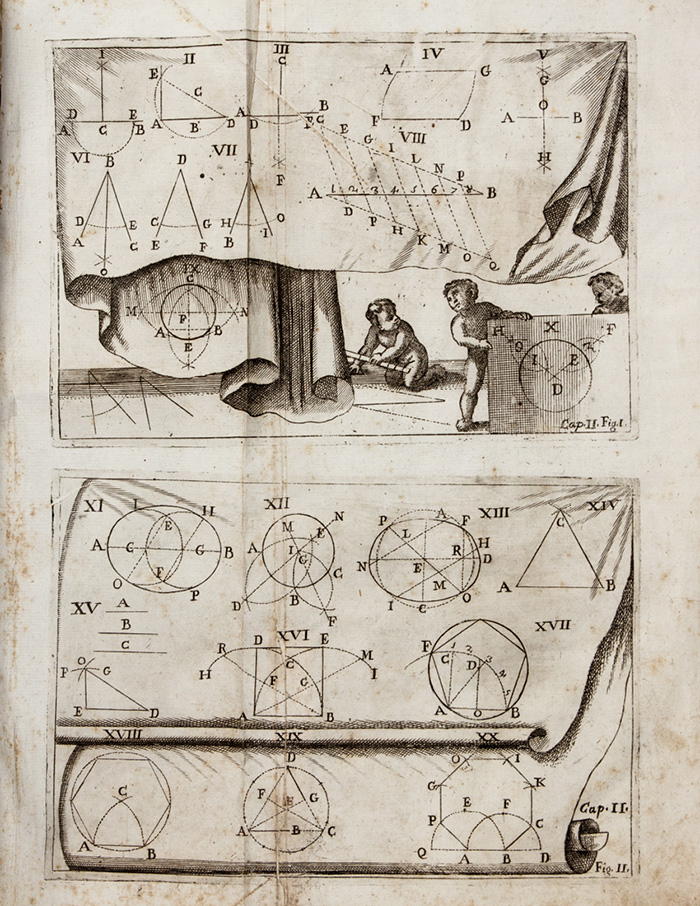 I II III IV V
C
E A G G
C O
D E A B A B
A C B A B D D F D F C E G I L N P H
VI B VII D A VIII
F
A 1 2 3 4 5 6 7 8 B
D E C G H O D P H K M O Q
A C E F B I
O
IX
C
M P N
A B
E
H X F
Q I E
D
Cap. II. Fig. I.
XI L H XII M E N P L A F XIII XIV
E C
A C G B A I G C N E R H D
F M
O P D B F I C O A B
XV A
B
C
XVI XVII
D E
O R C M F C 1 2 3 4 5
P G H F G I D
E D A B A O B
XVIII XIX XX
D O I
C F E G G K
P E F C
A B A B C Q A B D
Cap. II.
Fig. II.